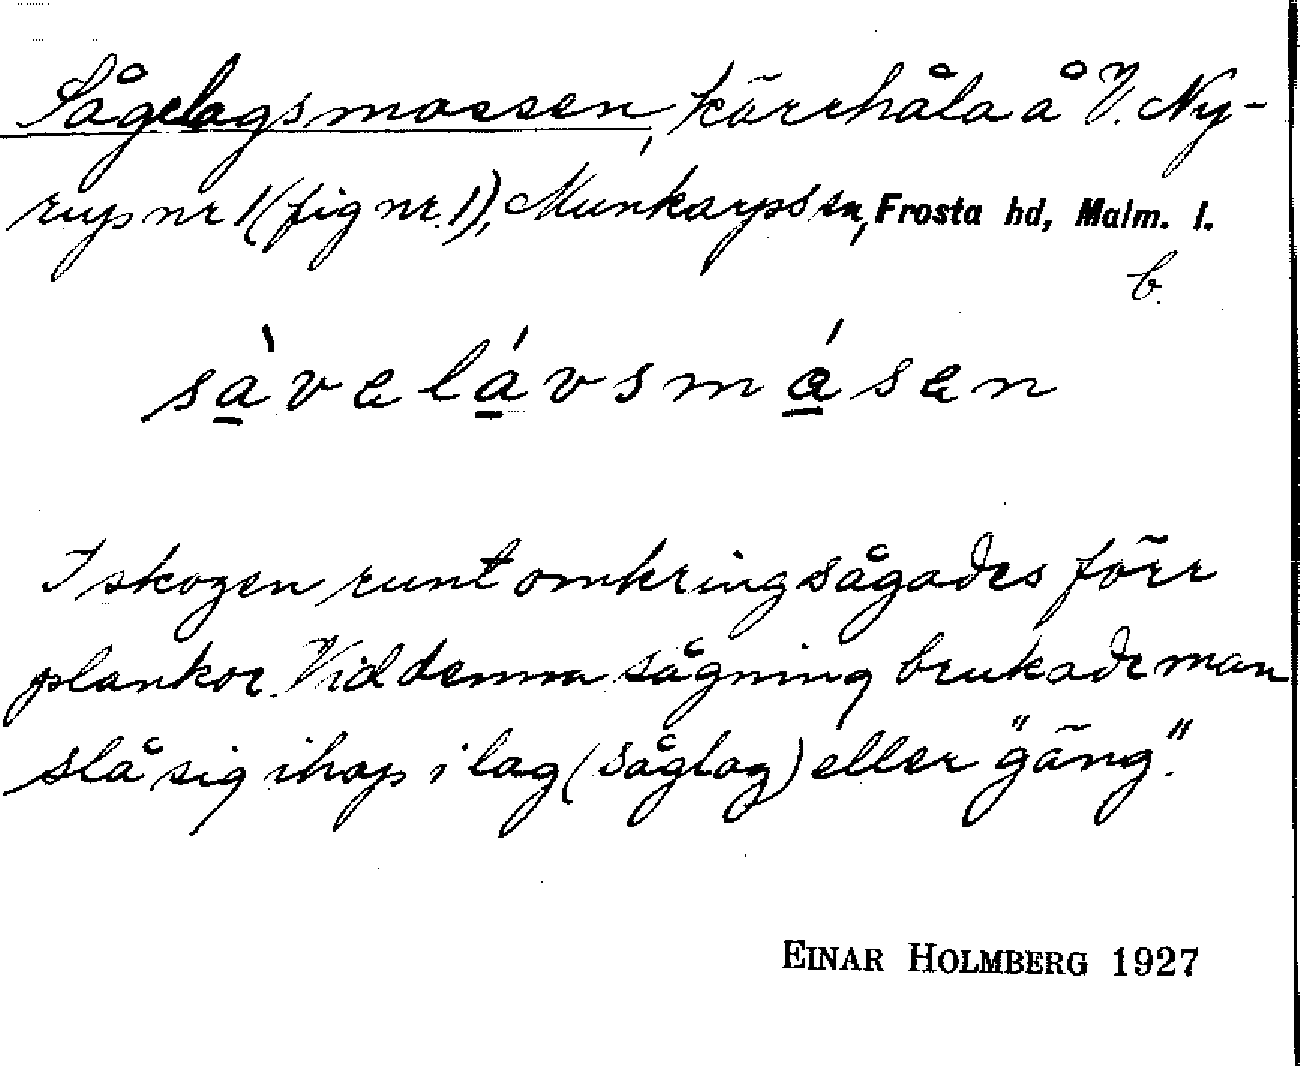 Sågelagsmossen, kärrhåla å V. Ny-
rup nr 1 (fig nr. 1), Munkarps sn, Frosta hd, Malm. l.
b.
sàvelávsmásen
I skogen runt omkring sågades förr
plankor. Vid denna sågning brukade man
slå sig ihop i lag (såglag) eller "gäng".
EINAR HOLMBERG 1927